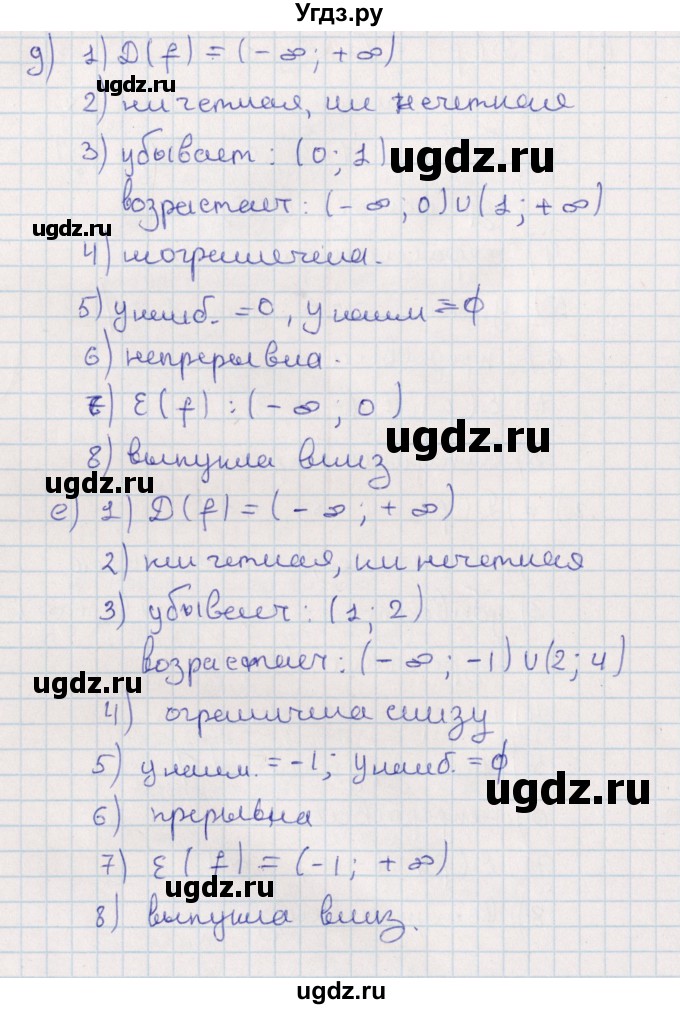 Угдз.ру
д) 1) D(f) = (-∞; +∞)
ugdz.ru
2) ни четная, ни нечетная
3) убывает: (0; 1)
ugdz.ru
возрастает: (-∞; 0)∪(1; +∞)
ugdz.ru
4)
5) y наиб. = 0, y наим = ϕ
6) непрерывна.
7) E(f): (-∞; 0)
ugdz.ru
8) выпукла вниз
ugdz.ru
е) 1) D(f) = (-∞; +∞)
2) ни четная, ни нечетная
3) убывает: (1; 2)
возрастает: (-∞; -1)∪(2; 4)
ugdz.ru
4) ограничена снизу
5) y наим. = -1; y наиб. = ϕ
ugdz.ru
6) прерывна
7) E(f) = (-1; +∞)
ugdz.ru
8) выпукла вниз.
ugdz.ru